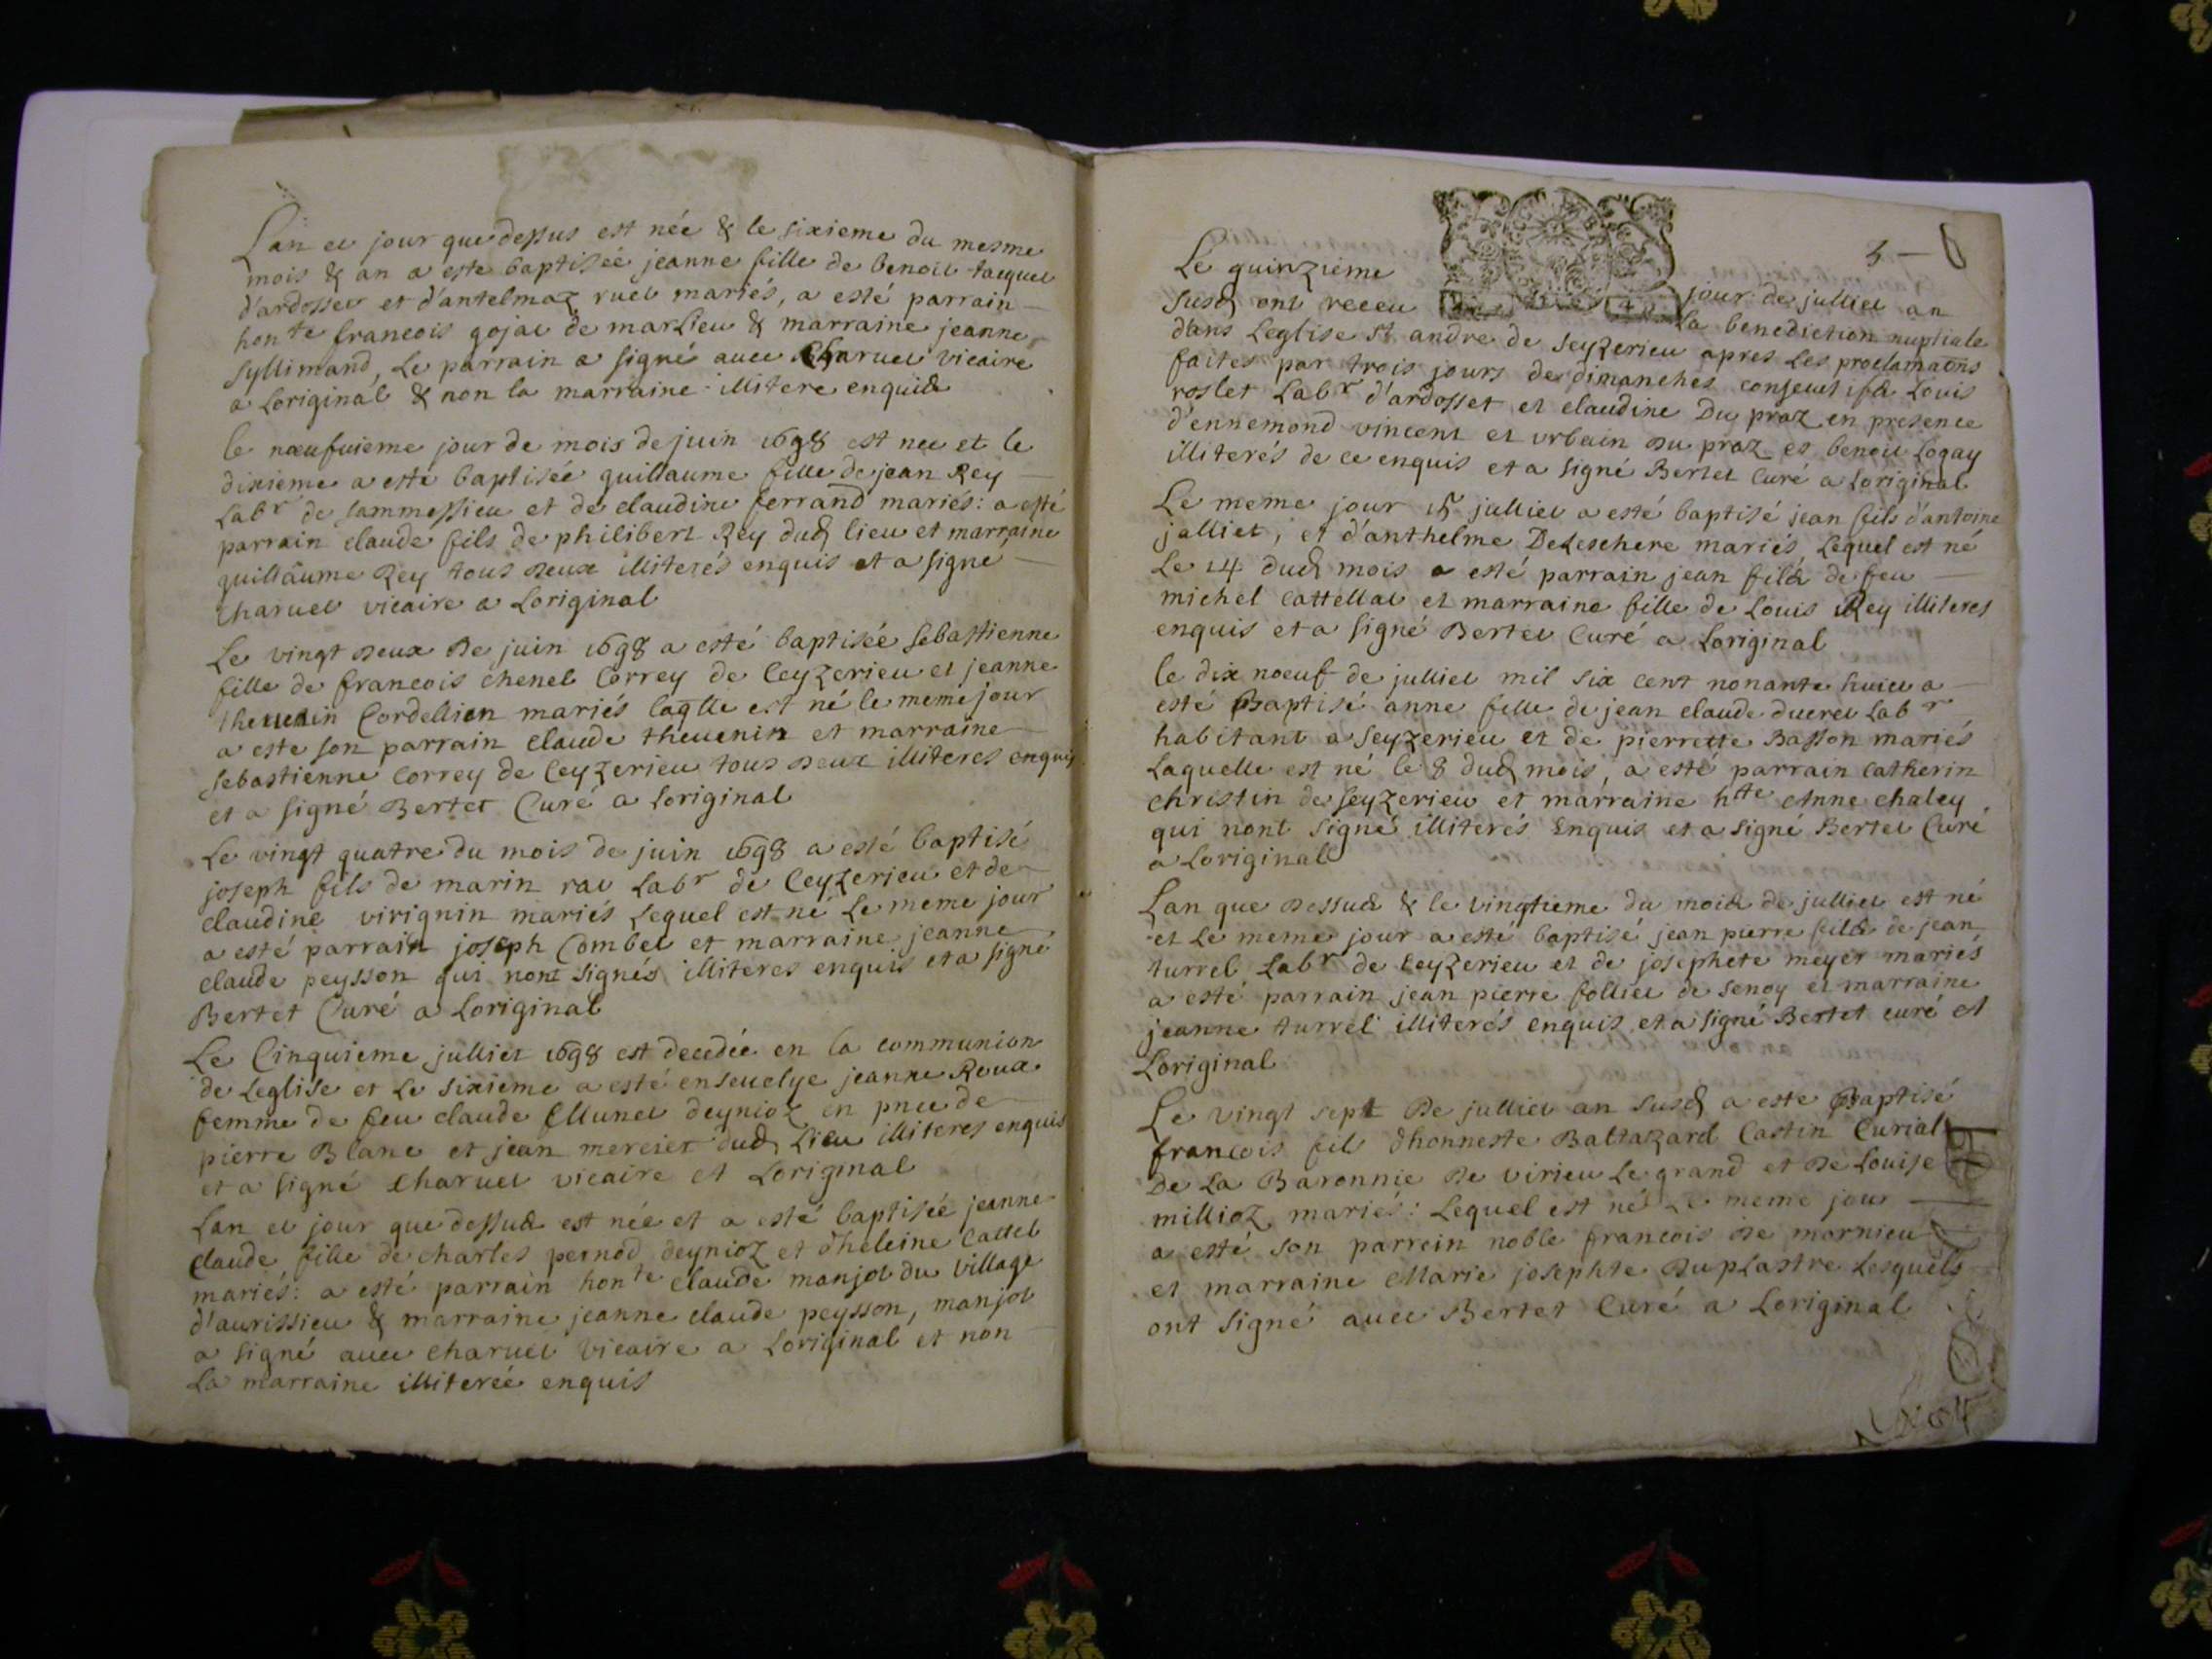 Lan et jour que dessus est née & le sixieme du mesme
mois & an a este baptisée jeanne fille de benoit tacquet
d'ardosset et d'antelmaz ruet mariés, a esté parrain
honte francois gojat de marlieu & marraine jeanne
syllimand, Le parrain a signé auec Charuet vicaire
a Loriginal & non la marraine illitere enquise
le noeufuieme jour de mois de juin 1698 est nee et le
dixieme a esté baptisée guillaume fille de jean Rey
Labr de sammessieu et de claudine ferrand mariés: a esté
parrain claude fils de philibert Rey dud lieu et marraine
guillaume Rey tous deux illiterés enquis et a signé
Charuet vicaire a Loriginal
Le vingt deux de juin 1698 a esté baptisée sebastienne
fille de francois chenel Correy de Ceyzerieu et jeanne
theuenin Cordellien mariés laqlle est né le meme jour
a este son parrain claude theuenin et marraine
sebastienne Correy de Ceyzerieu tous deux illiteres enquis
et a signé Bertet Curé a Loriginal
Le vingt quatre du mois de juin 1698 a esté baptisé
joseph fils de marin rau Labr de Ceyzerieu et de
claudine virignin mariés Lequel est né Le meme jour
a esté parrain joseph Combet et marraine jeanne
claude peysson qui nont signés illiteres enquis et a signé
Bertet Curé a Loriginal
Le Cinquieme julliet 1698 est decedée en la communion
de Leglise et Le sixieme a esté enseuelye jeanne Roux
femme de feu claude Munet deynioz en pnce de
pierre Blanc et jean mercier dud Lieu illiteres enquis
et a signé Charuet vicaire et Loriginal
Lan et jour que dessus est née et a esté baptisée jeanne
Claude fille de charles pernod deynioz et d'heleine Cattel
mariés: a esté parrain honte claude manjot du village
d'aurissieu & marraine jeanne claude peysson, manjot
a signé auec Charuet vicaire a Loriginal et non
La marraine illiterée enquis
3 - 6
Le quinzieme jour de julliet an
susd ont receu La benediction nuptiale
dans Leglise st andre de seyzerieu apres Les proclamaons
faites par trois jours de dimanches consecutifs Louis
roslet Labr d'ardosset et claudine Du praz en presence
d'ennemond vincent et vrbain du praz et benoit Logay
illiterés de ce enquis et a signé Bertet Curé a Loriginal
Le meme jour 15 julliet a esté baptisé jean fils d'antoine
jalliet, et d'anthelme Deleschere mariés, Lequel est né
Le 14 dud mois a esté parrain jean fils de feu
michel Cattellat et marraine fille de Louis Rey illiteres
enquis et a signé Bertet Curé a Loriginal
le dix noeuf de julliet mil six cent nonante huict a
esté Baptisé anne fille de jean claude ducret Labr
habitant a seyzerieu et de pierrette Basson mariés
Laquelle est né le 8 dud mois, a esté parrain Catherin
christin de seyzerieu et marraine htte Anne chaley
qui nont signé illiterés Enquis et a signé Bertet Curé
a Loriginal
Lan que dessus & le vingtieme du mois de julliet est né
et Le meme jour a esté baptisé jean pierre fils de jean
turrel Labr de Ceyzerieu et de josephete meyer mariés
a esté parrain jean pierre folliet de senoy et marraine
jeanne turrel illiterés enquis et a signé Bertet curé et
Loriginal
Le vingt sept de julliet an susd a este Baptisé
francois fils dhonneste Baltazard Castin Curial
De La Baronnie de virieu Le grand et de Louise
millioz mariés: Lequel est né Le meme jour
a esté son parrein noble francois de mornieu
et marraine Marie josephte duplastre Lesquels
ont signé auec Bertet Curé a Loriginal